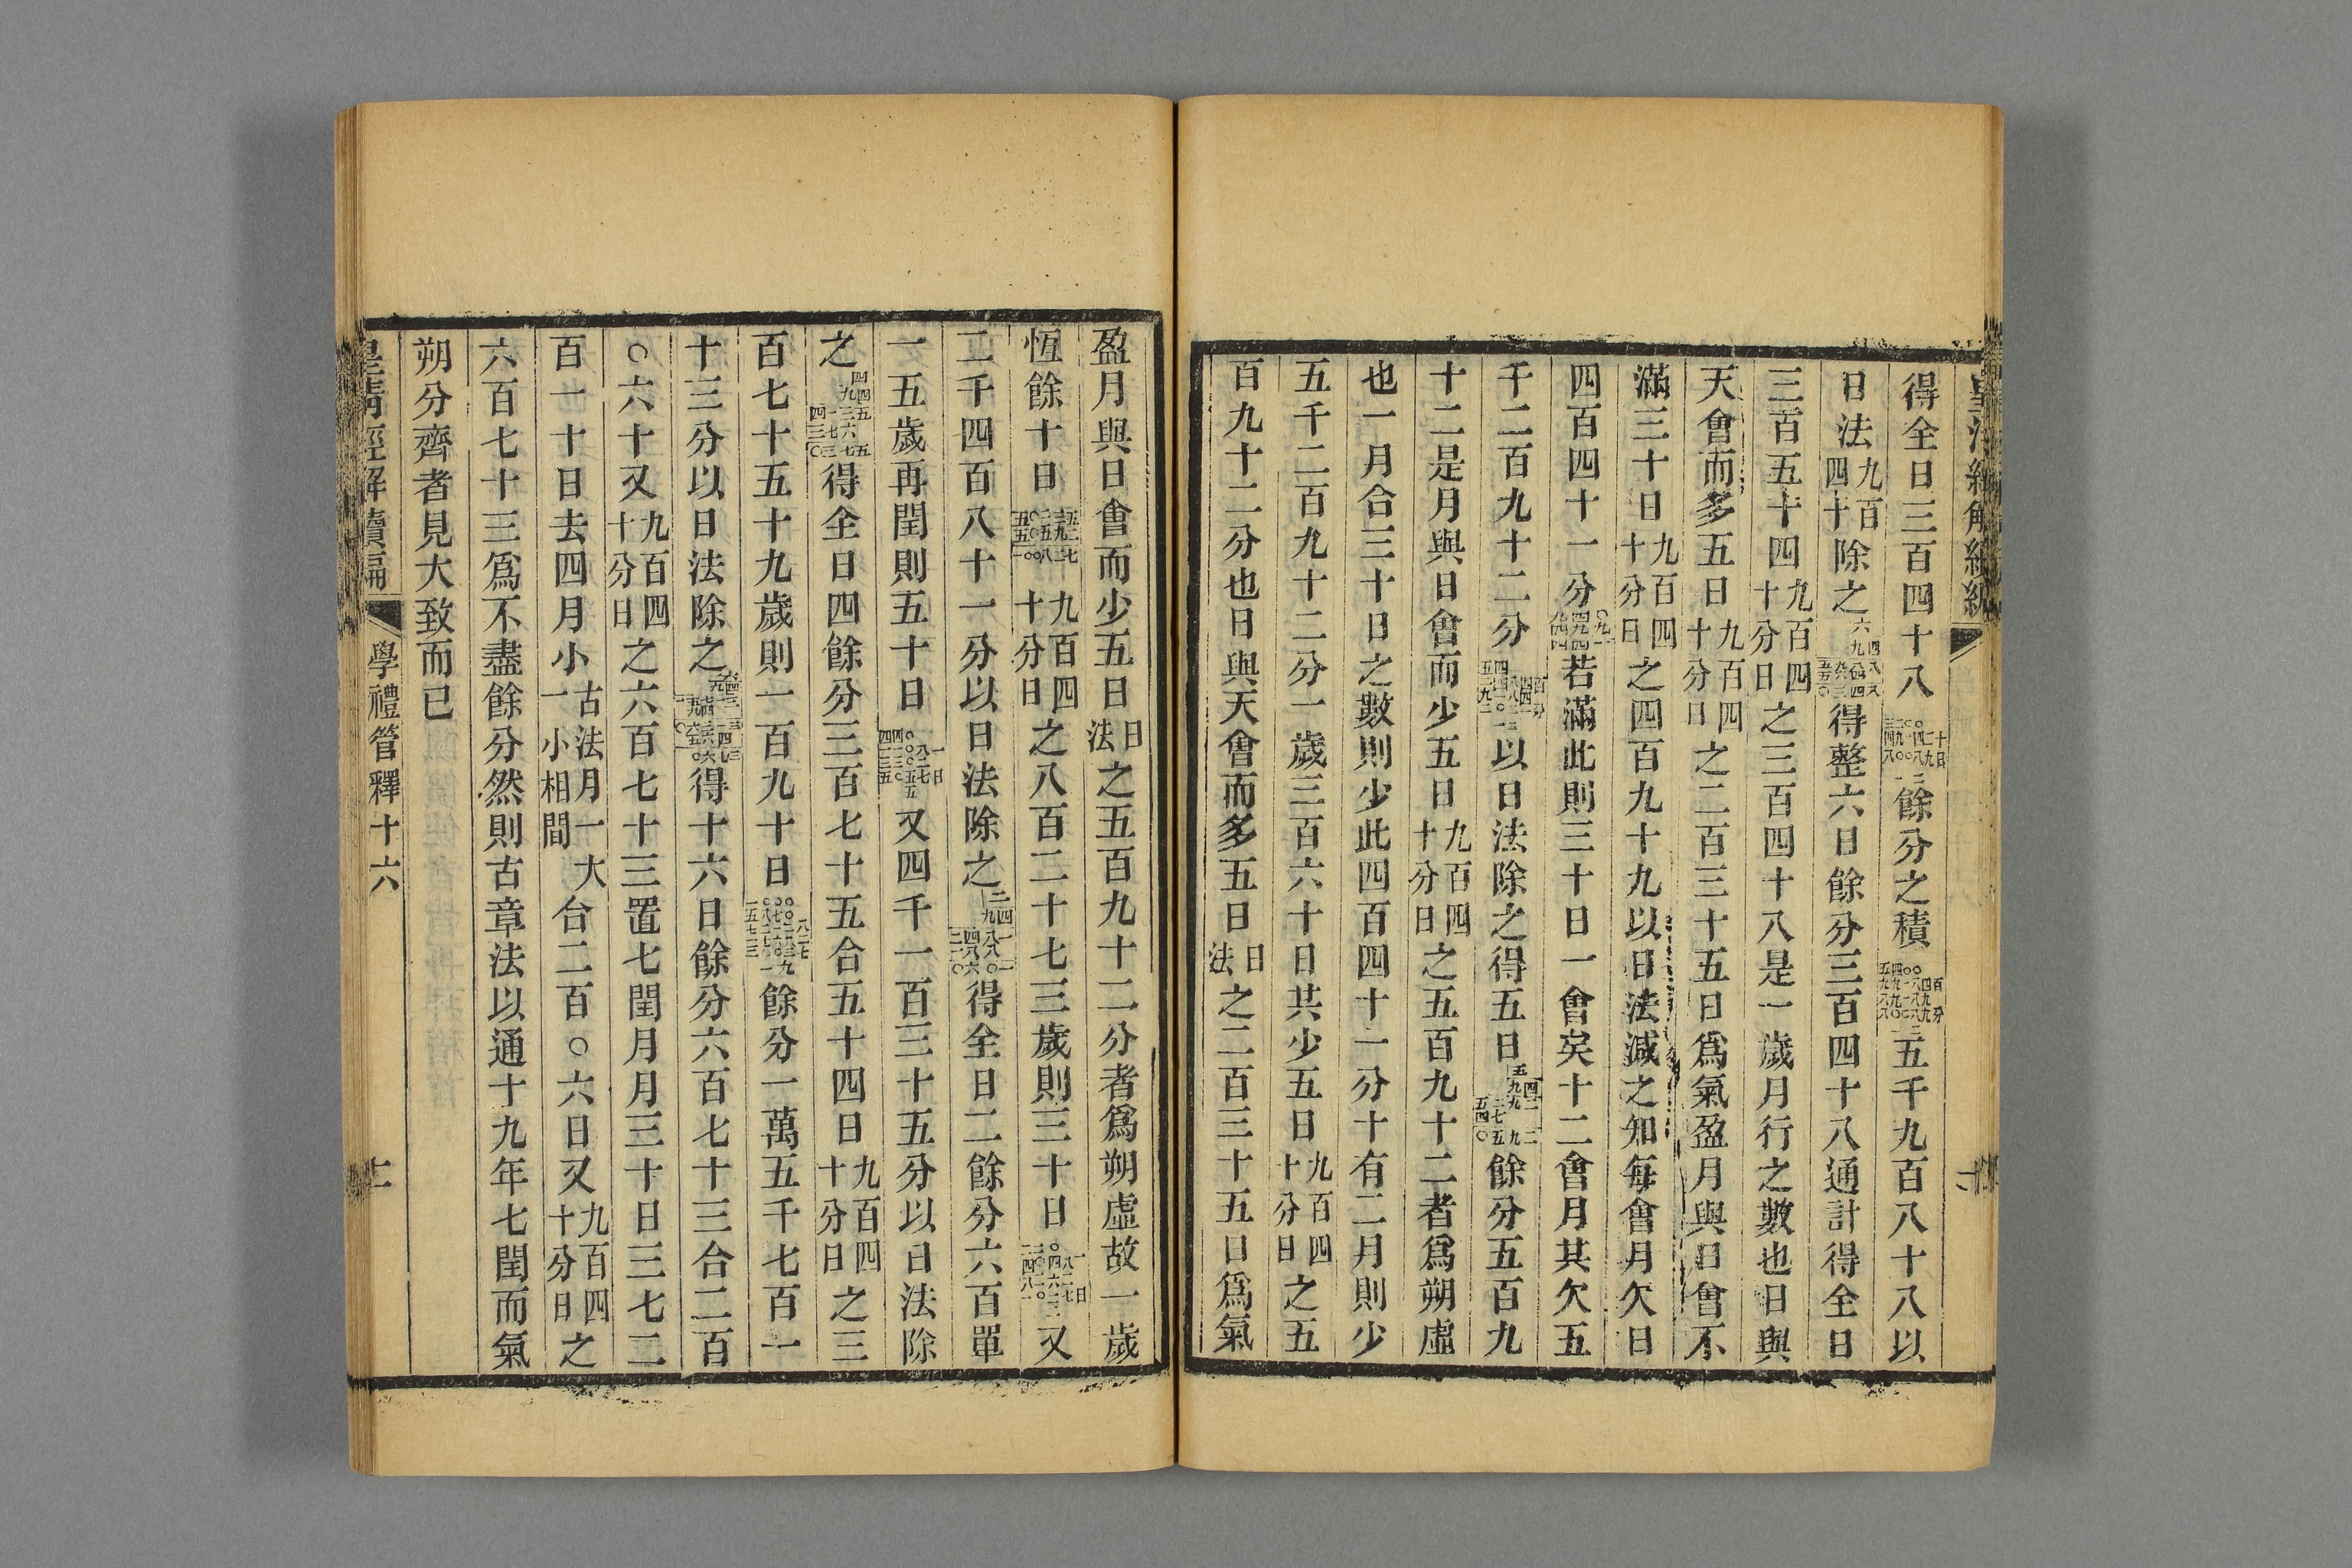 得全日三百四十八餘分之積五千九百八十八以
日法九百四十除之得整六日餘分三百四十八通計得全日
三百五十四九百四十分日之三百四十八是一歲月行之數也日與
天會而多五日九百四十分日之二百三十五日爲氣盈月與日會不
滿三十日九百四十分日之四百九十九以日法減之知每會月欠日
四百四十一分若滿此則三十日一會矣十二會月其欠五
千二百九十二分以日法除之得五日餘分五百九
十二是月與日會而少五日九百四十分日之五百九十二者爲朔虛
也一月合三十日之數則少此四百四十一分十有二月則少
五千二百九十二分一歲三百六十日共少五日九百四十分日之五
百九十二分也日與天會而多五日日法之二百三十五日爲氣
盈月與日會而少五日日法之五百九十二分者爲朔虛故一歲
恆餘十日九百四十分日之八百二十七三歲則三十日又
二千四百八十一分以日法除之得全日二餘分六百單
一五歲再閏則五十日又四千一百三十五分以日法除
之得全日四餘分三百七十五合五十四日九百四十分日之三
百七十五十九歲則一百九十日餘分一萬五千七百一
十三分以日法除之得十六日餘分六百七十三合二百
○六十又九百四十分日之六百七十三置七閏月月三十日三七二
百一十日去四月小古法月一大一小相間合二百○六日又九百四十分日之
六百七十三爲不盡餘分然則古章法以通十九年七閏而氣
朔分齊者見大致而已
皇淸經解續編 學禮管釋十六